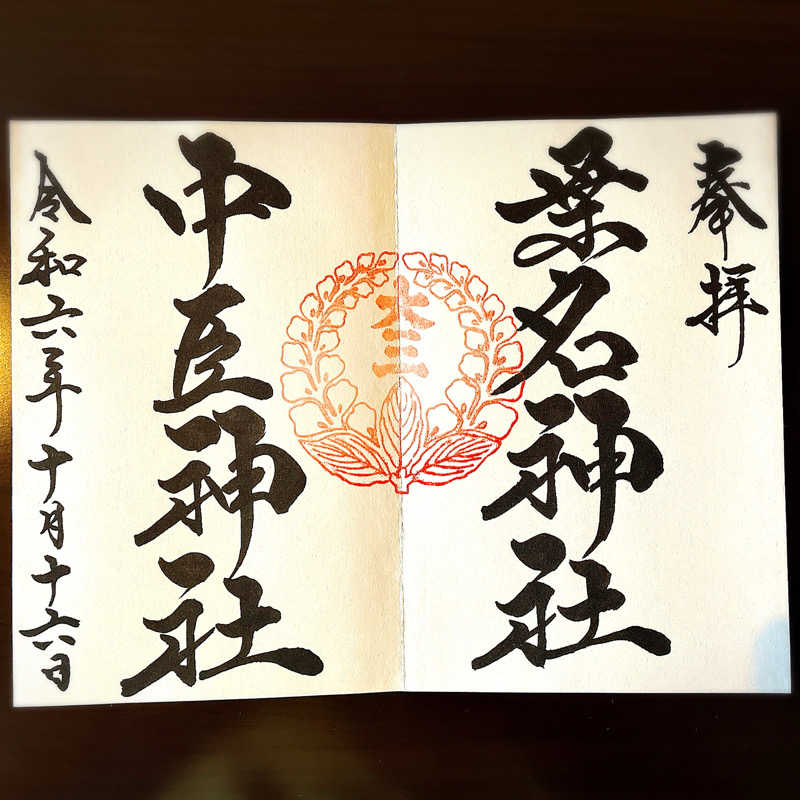 奉拝
桑名神社
大三
中臣神社
令和六年十月十六日